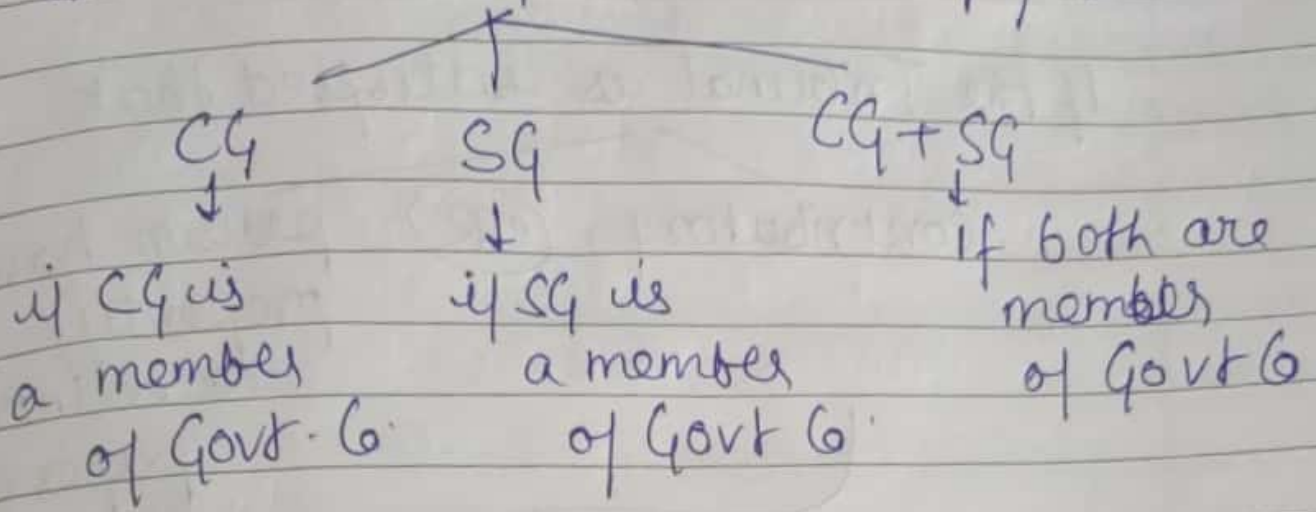 CG SG CG + SG
if CG is
a member
of Govt. Co.
if SG is
a member
of Govt Co.
if both are
members
of Govt Co